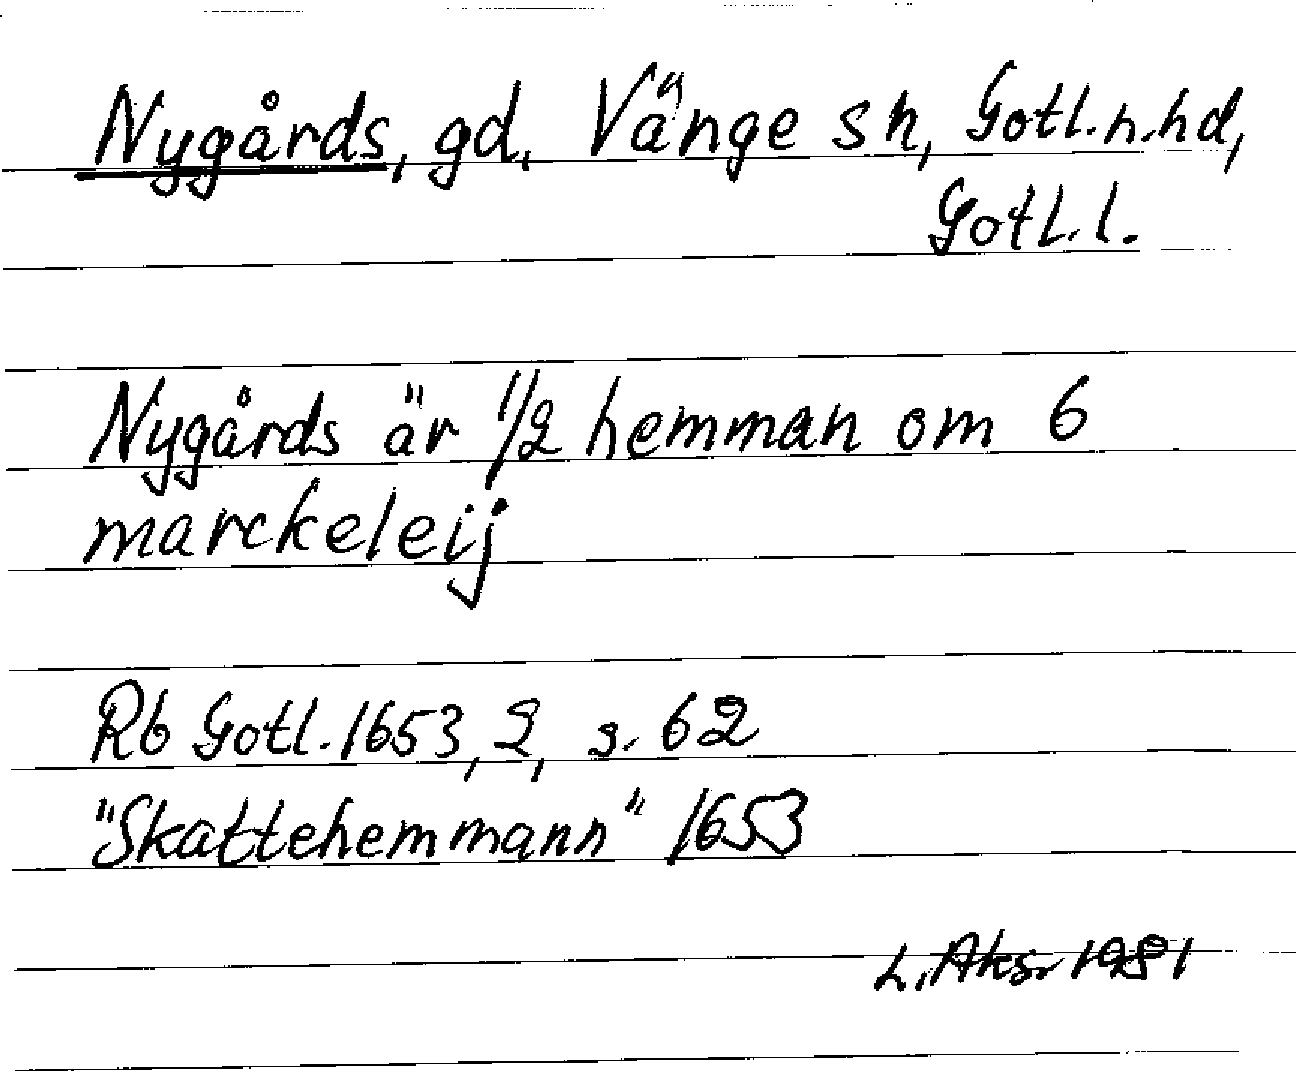 Nygårds, gd, Vänge sn, Gotl.n.hd,
Gotl.l.
Nygårds är 1/2 hemman om 6
marckeleij
Rb Gotl.1653,2, s. 62
"Skattehemmann" 1653
L.Aks. 1981